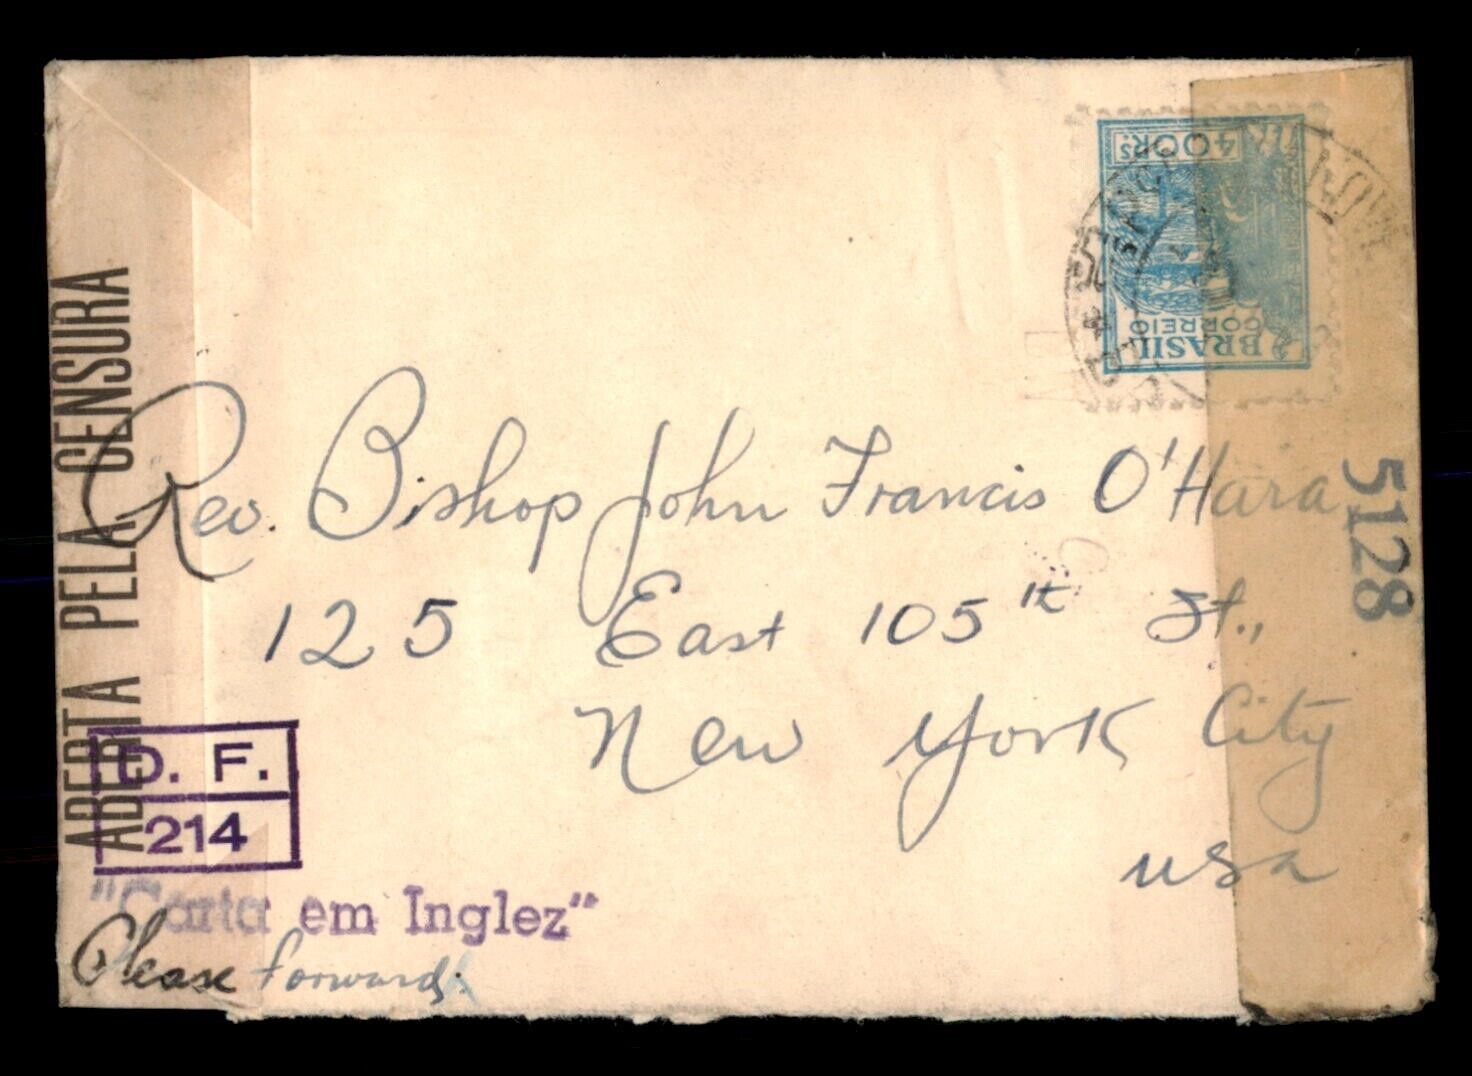 400 Rs
BRASIL
CORREIO
ABERTA PELA CENSURA
5128
Rev. Bishop John Francis O'Hara
125 East 105th St.,
New York City
USA
D. F.
214
"Carta em Inglez"
Please forward.